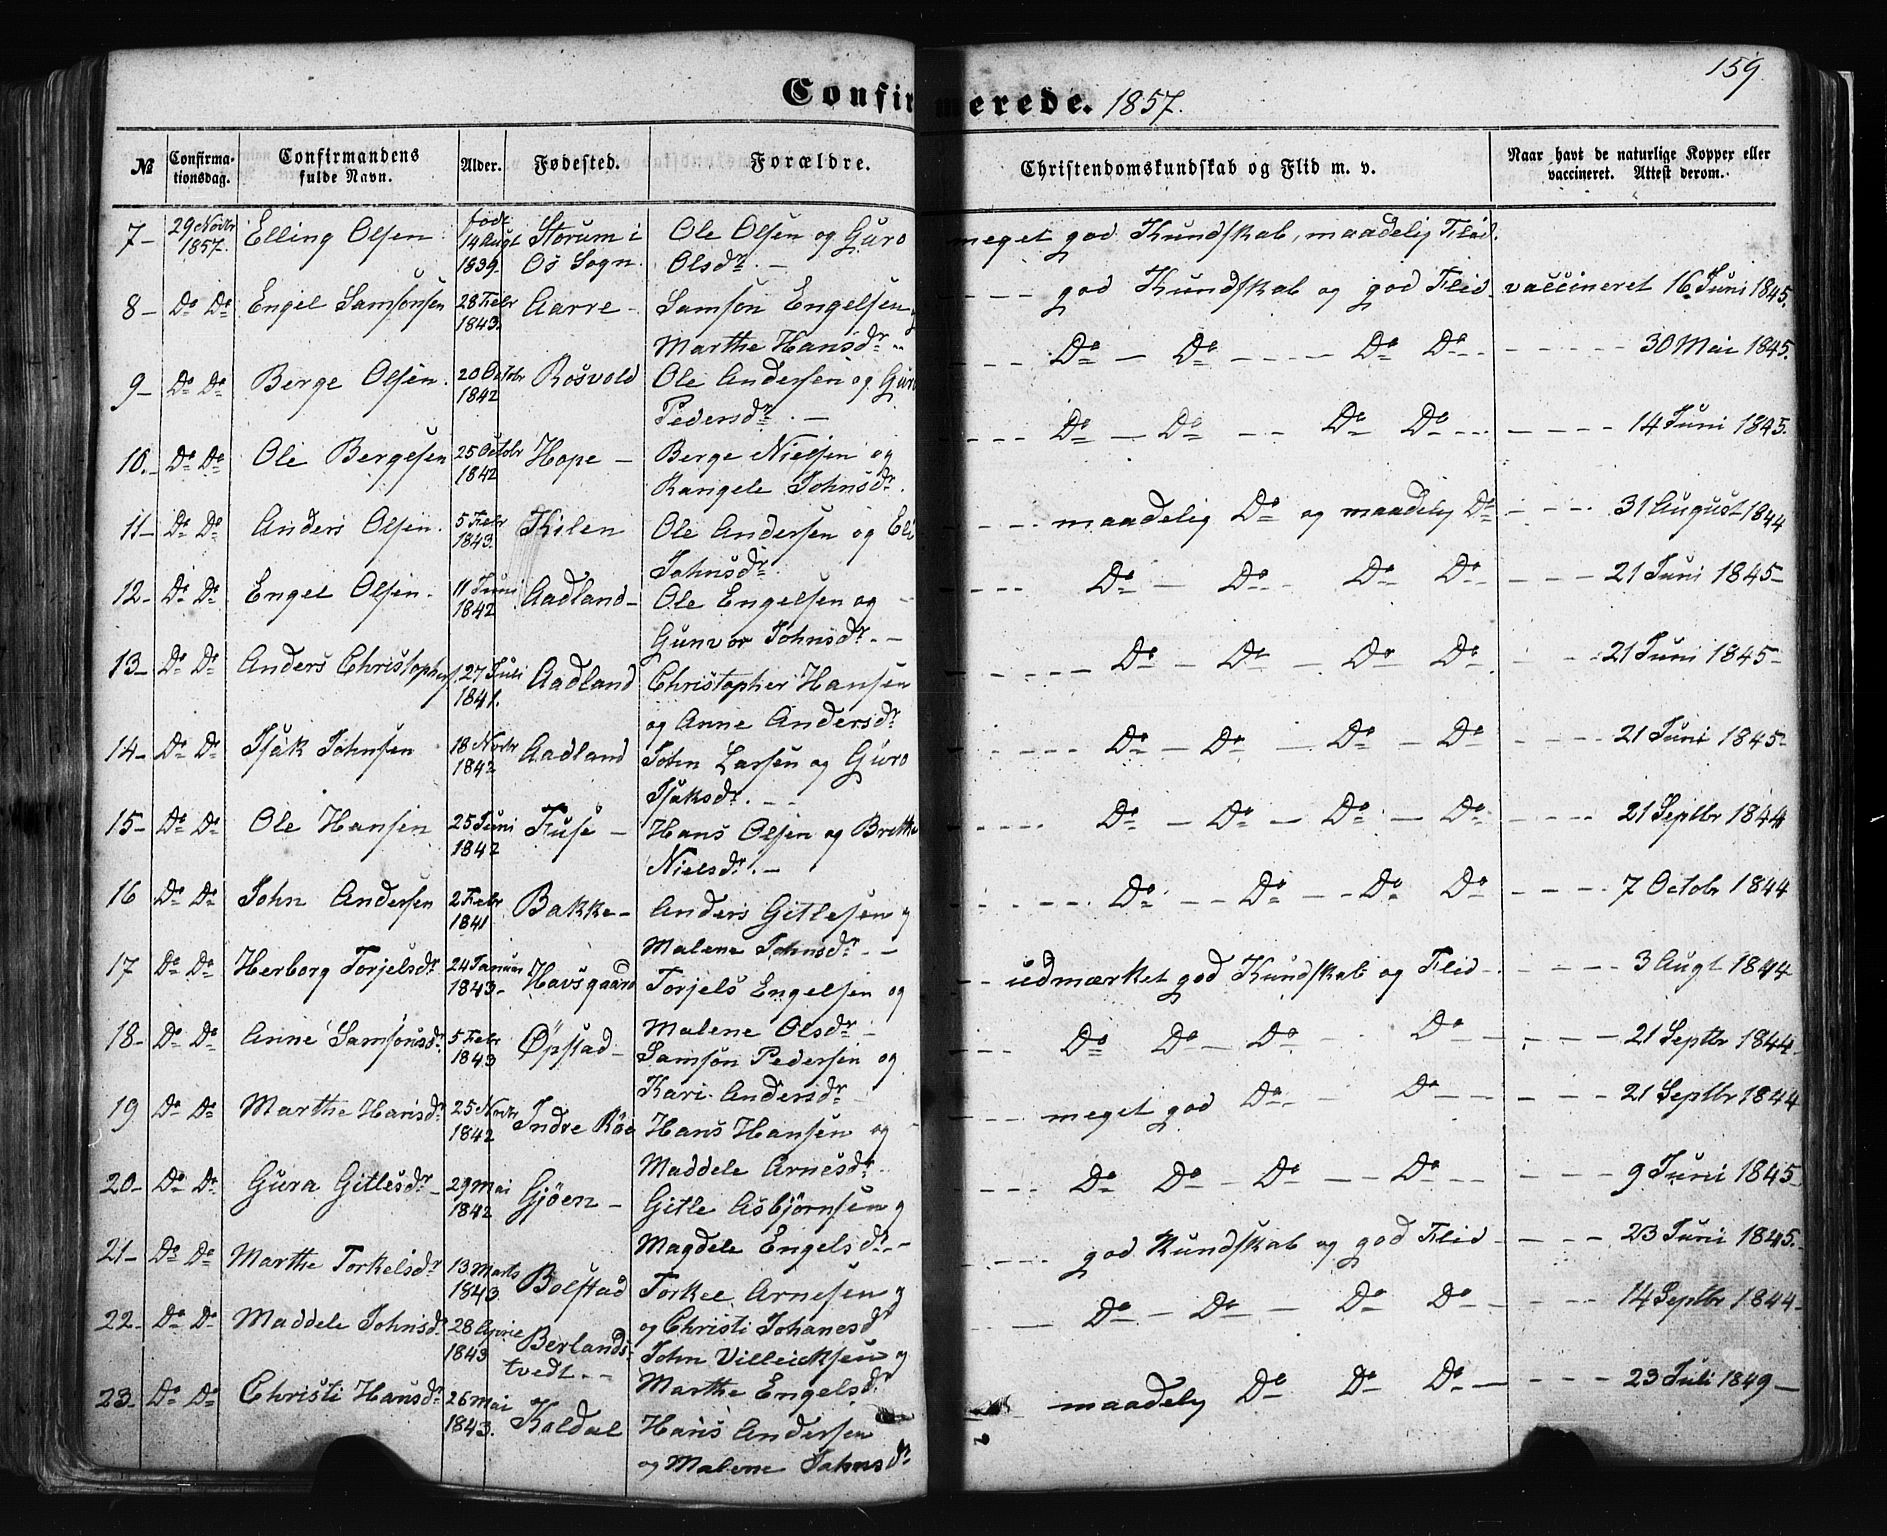 159
Confirmerede. 1857.
№ Confirmationsdag. Confirmandens fulde Navn. Alder. Fødested. Forældre. Christendomskundskab og Flid m. v. Naar havt de naturlige Kopper eller vaccineret. Attest derom.
7- 29 Novbr 1857. Elling Olsen. født 14 Augt 1839. Storum i Os Sogn. Ole Olsen og Guro Olsdr. - meget god Kundskab, maadelig Flid.
8- Do Do Engel Samsonsen 28 Febr 1843. Aarre- Samson Engelsen og Marthe Hansdr. - - - god Kundskab og god Flid - vaccineret 16 Juni 1845.
9- Do Do Berge Olsen. 20 Octobr 1842 Rosvold Ole Andersen og Guro Pedersdr. - - - - Do - Do - - - - Do Do - - - - - - - 30 Mai 1845.
10.- Do Do Ole Bergesen 25 Octobr 1842 Hope- Berge Nielsen og Rangele Johnsdr. - - - Do - Do - - Do Do - - - - - - - 14 Juni 1845.
11- Do Do Anders Olsen. 5 Febr 1843. Kilen Ole Andersen og Eli Johnsdr. - - - maadelig Do og maadelig Do - - - - 31 August 1844
12- Do Do Engel Olsen. 11 Juni 1842 Aadland- Ole Engelsen og Gunvor Johnsdr. - - - - Do - Do - Do Do - - - - - 21 Juni 1845-
13- Do Do Anders Christophers. 27 Juli 1841. Aadland Christopher Hansen og Anne Andersdr - - - - Do - Do - Do - Do - - - - 21 Juni 1845-
14- Do Do Isak Johnsen 18 Novbr 1842 Aadland John Larsen og Guro Isaksdr. - - - - - - - Do - Do - Do - Do - - - - 21 Juni 1845-
15- Do Do Ole Hansen 25 Juni 1842 Fuse- Hans Olsen og Brithe Nielsdr. - - - - - Do - Do - Do - Do - - - - - 21 Septbr 1844
16 Do Do John Andersen 2 Febr 1841 Bakke- Anders Gitlesen og Malene Johnsdr. - - - - - - Do - - Do - - Do Do - - - - 7 Octobr 1844
17 Do Do Herborg Torjelsdr 24 Januar 1843- Havsgaard Torjels Engelsen og Malene Olsdr - - - udmærket god Kundskab og Flid - - - - 3 Augt 1844
18- Do Do Anne Samsonsdr. 5 Febr 1843 Øpstad- Samson Pedersen og Kari Andersdr - - - Do Do - Do - - Do - - - - - 21 Septbr 1844-
19 Do Do Marthe Hansdr. 25 Novbr 1842 Indre Røe Hans Hansen og Maddele Arnesdr. - - - meget god Do - - Do - - - - - 21 Septbr 1844
20- Do Do Gura Gitlesdr- 29 Mai 1842 Gjøen- Gitle Asbjørnsen og Magdele Engelsdr. - - - - Do Do - Do - - Do - - - - - 9 Juni 1845-
21- Do Do Marthe Torkelsdr 13 Marts 1843 Bolstad Torkel Arnesen og og Christi Johanesdr god Kundskab og god Flid - - - - 23 Juni 1845.-
22- Do Do Maddele Johnsd. 28 April 1843 Berlandstvedt. - - John Villeiksen og Marthe Engelsdr. Do - Do - Do Do - - - - - 14 Septbr 1844-
23- Do Do Christi Hansdr 26 Mai 1843. Koldal Hans Andersen og Malene Johnsdr maadelig Do - Do Do - - - - - 23 Juli 1849-